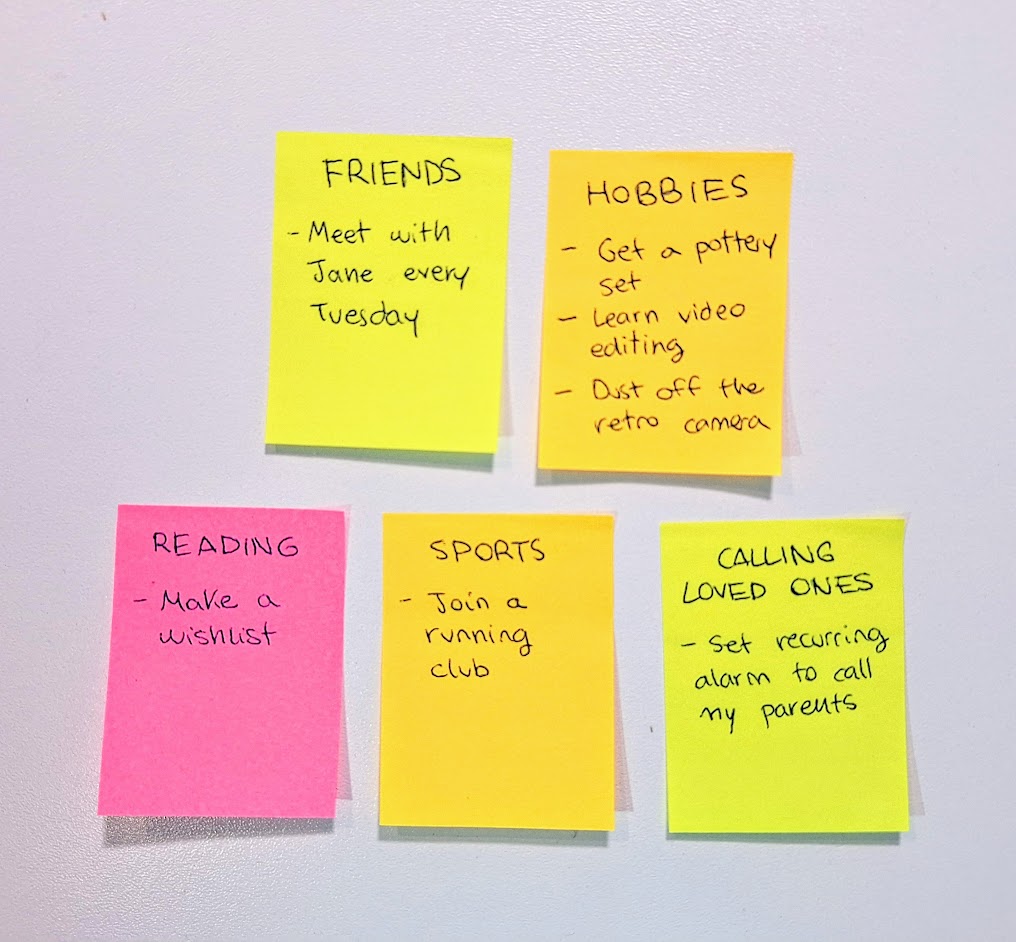 FRIENDS
- Meet with
Jane every
Tuesday
HOBBIES
- Get a pottery
set
- Learn video
editing
- Dust off the
retro camera
READING
- Make a
wishlist
SPORTS
- Join a
running
club
CALLING
LOVED ONES
- Set recurring
alarm to call
my parents